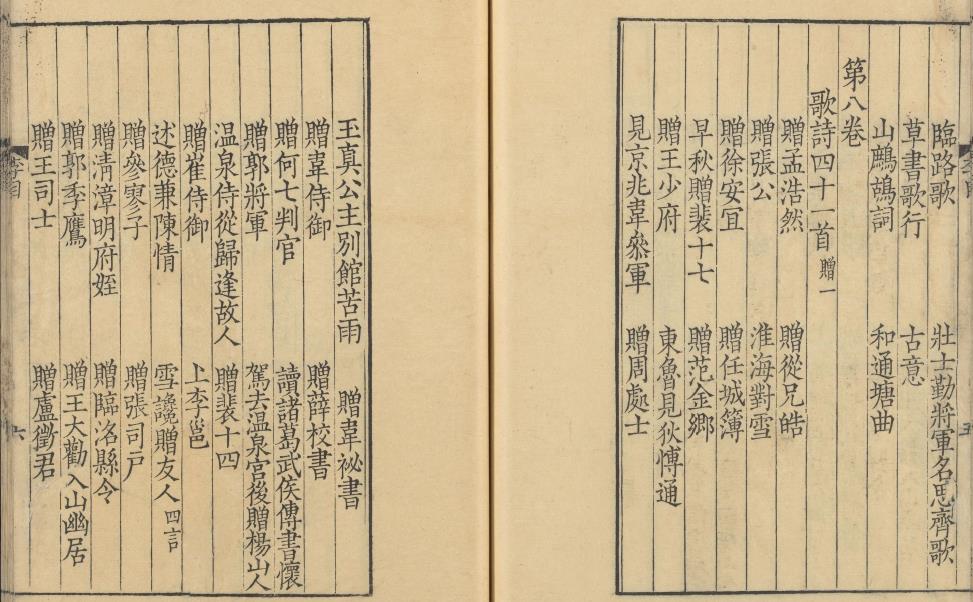 臨路歌　壯士勤將軍名思齊歌
草書歌行　古意
山鷓鴣詞　和通塘曲
第八卷
歌詩四十一首 贈一
贈孟浩然　贈從兄皓
贈張公　淮海對雪
贈徐安冝　贈任城簿
早秋贈裴十七　贈范金鄉
贈王少府　東魯見狄愽通
見京兆韋叅軍　贈周處士
玉真公主別館苦雨　贈韋祕書
贈韋侍御　贈薛校書
贈何七判官　讀諸葛武侯傳書懷
贈郭將軍　駕去温泉宮後贈楊山人
温泉侍從歸逢故人　贈裴十四
贈崔侍御　上李邕
述德兼陳情　雪讒贈友人 四言
贈參寥子　贈張司戶
贈清漳明府姪　贈臨洺縣令
贈郭季鷹　贈王大勸入山幽居
贈王司士　贈盧徵君
李目
六